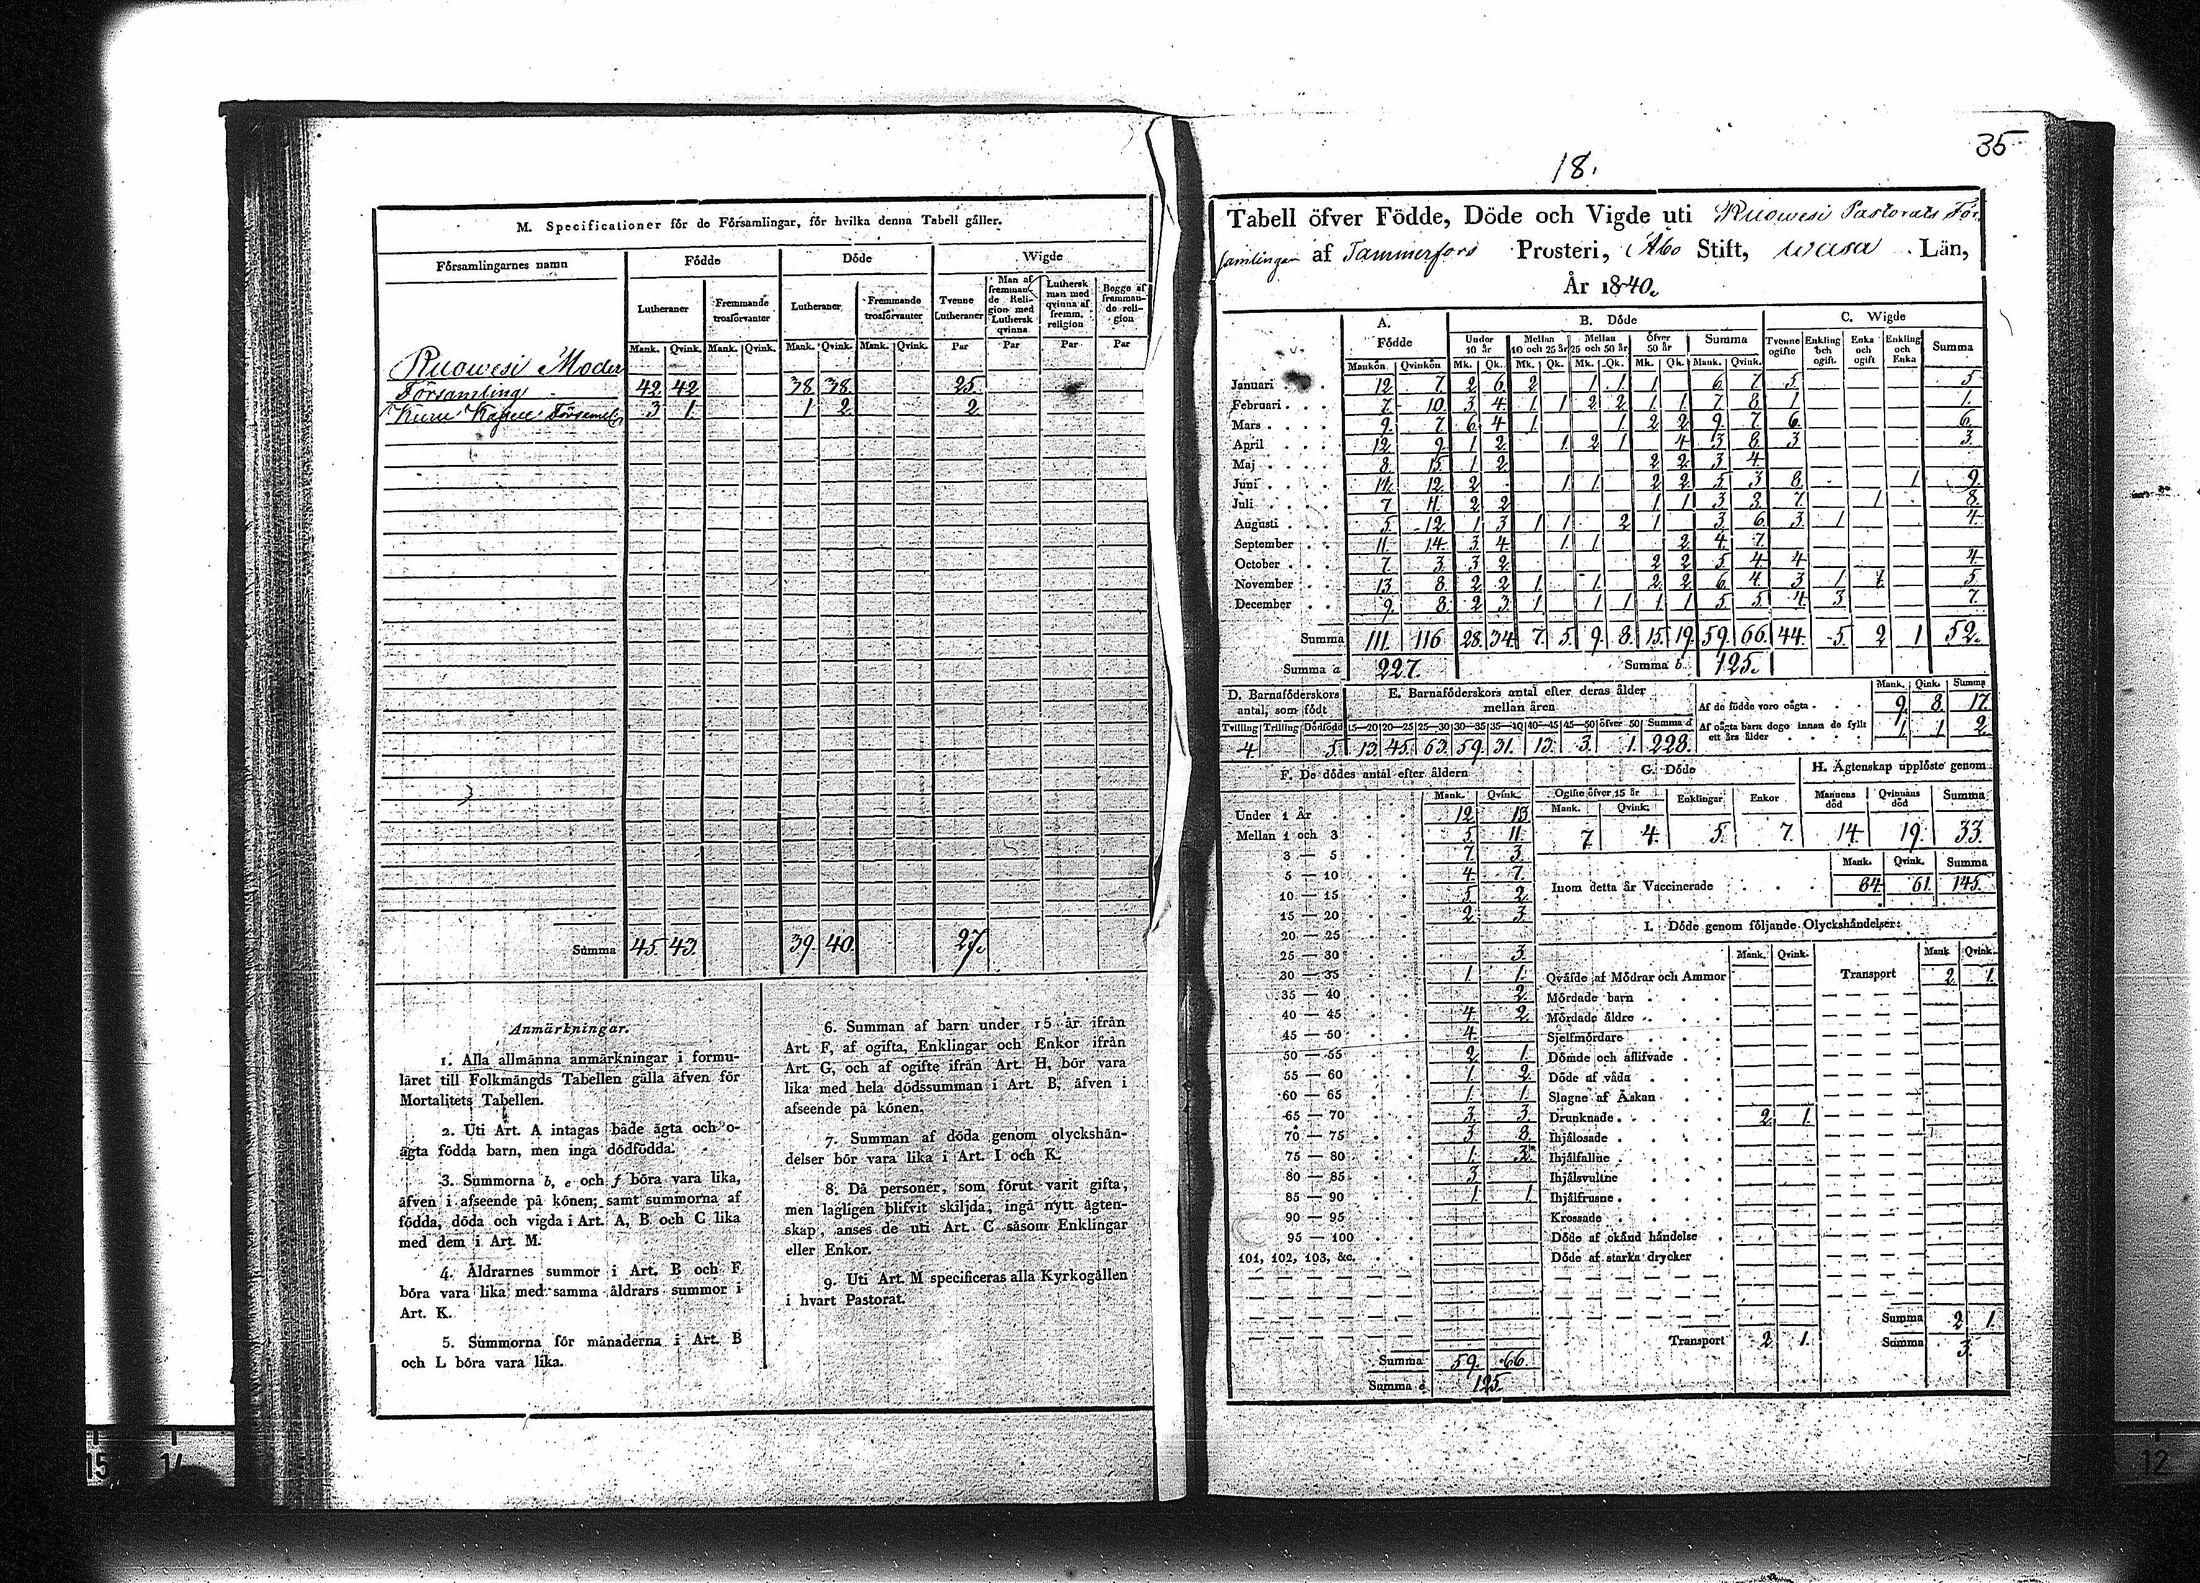 M. Specificationer för de Församlingar, för hvilka denna Tabell gäller.
Församlingarnes namn Födde Döde Wigde
Lutheraner Fremmande trosförvanter Lutheraner Fremmande trosförvanter Tvenne Lutheraner Man af fremmande Religion med Luthersk qvinna Luthersk man med qvinna af fremm. religion Begge af fremmande religion
Mank. Qvink. Mank. Qvink. Mank. Qvink. Mank. Qvink. Par Par Par Par
Ruowesi Moder
Församling 42 42 38 38 25
Kuru Kapell Församl. 3 1 1 2 2
Summa 45 43 39 40 27
Anmärkningar.
1. Alla allmänna anmärkningar i formu-
läret till Folkmängds Tabellen gälla äfven för
Mortalitets Tabellen.
2. Uti Art. A intagas både ägta och o-
ägta födda barn, men inga dödfödda.
3. Summorna b, e och f böra vara lika,
äfven i afseende på könen; samt summorna af
födda, döda och vigda i Art. A, B och C lika
med dem i Art. M.
4. Åldrarnes summor i Art. B och F
böra vara lika med samma åldrars summor i
Art. K.
5. Summorna för månaderna i Art. B
och L böra vara lika.
6. Summan af barn under 15 år ifrån
Art. F, af ogifta, Enklingar och Enkor ifrån
Art. G, och af ogifte ifrån Art. H, bör vara
lika med hela dödssumman i Art. B, äfven i
afseende på könen.
7. Summan af döda genom olyckshän-
delser bör vara lika i Art. I och K.
8. Då personer, som förut varit gifta,
men lagligen blifvit skiljda, ingå nytt ägten-
skap, anses de uti Art. C såsom Enklingar
eller Enkor.
9. Uti Art. M specificeras alla Kyrkogällen
i hvart Pastorat.
35
18.
Tabell öfver Födde, Döde och Vigde uti Ruowesi Pastorats För
samlingar af Tammerfors Prosteri, Åbo Stift, Wasa Län,
År 1840.
A. Födde B. Döde C. Wigde
Under 10 år Mellan 10 och 25 år Mellan 25 och 50 år Öfver 50 år Summa Tvenne ogifte Enkling och ogift Enka och ogift Enkling och Enka Summa
Mankön Qvinkön Mk. Qk. Mk. Qk. Mk. Qk. Mk. Qk. Mank. Qvink.
Januari 12 7 2 6 2 1 1 1 6 7 5 5
Februari 7 10 3 4 1 1 2 2 1 1 7 8 1 1
Mars 9 7 6 4 1 1 2 2 9 7 6 6
April 12 9 1 2 1 2 1 4 3 8 3 3
Maj 8 15 1 2 2 2 3 4
Juni 12 2 1 1 2 2 5 3 8 1 9
Juli 7 11 2 2 1 1 3 3 7 1 8
Augusti 5 12 1 3 1 1 2 1 3 6 3 1 4
September 11 14 3 4 1 1 2 4 7
October 7 3 3 2 2 2 5 4 4 4
November 13 8 2 2 1 1 2 2 6 4 3 1 1 5
December 9 8 2 3 1 1 1 1 1 5 5 4 3 7
Summa 111 116 28 34 7 5 9 8 15 19 59 66 44 5 2 1 52
Summa a 227 Summa b 125
D. Barnaföderskors antal, som födt
Tvilling Trilling Dödfödd
4 5
E. Barnaföderskors antal efter deras ålder mellan åren
15—20 20—25 25—30 30—35 35—40 40—45 45—50 öfver 50 Summa d
13 45 63 59 31 13 3 1 228
Mank. Qink. Summa
Af de födde voro oägta 9 8 17
Af oägta barn dogo innan de fyllt ett års ålder 1 1 2
F. De dödes antal efter åldern
Mank. Qvink.
Under 1 År 12 13
Mellan 1 och 3 5 11
3 — 5 7 3
5 — 10 4 7
10 — 15 5 2
15 — 20 2 3
20 — 25
25 — 30 3
30 — 35 1 1
35 — 40 2
40 — 45 4 2
45 — 50 4
50 — 55 2 1
55 — 60 1 2
60 — 65 1 1
65 — 70 3 3
70 — 75 3 8
75 — 80 1 3
80 — 85 3
85 — 90 1 1
90 — 95
95 — 100
101, 102, 103, &c.
Summa 59 66
Summa e 125
G. Döde
Ogifte öfver 15 år Enklingar Enkor
Mank. Qvink.
7 4 5 7
H. Ägtenskap upplöste genom
Mannens död Qvinnans död Summa
14 19 33
Mank. Qvink. Summa
Inom detta år Vaccinerade 84 61 145
I. Döde genom följande Olyckshändelser:
Mank. Qvink. Mank Qvink.
Qväfde af Mödrar och Ammor Transport 2 1
Mördade barn
Mördade äldre
Sjelfmördare
Dömde och aflifvade
Döde af våda
Slagne af Åskan
Drunknade 2 1
Ihjälosade
Ihjälfallne
Ihjälsvultne
Ihjälfrusne
Krossade
Döde af okänd händelse
Döde af starka drycker
Summa 2 1
Transport 2 1 Summa 3
15 14
12